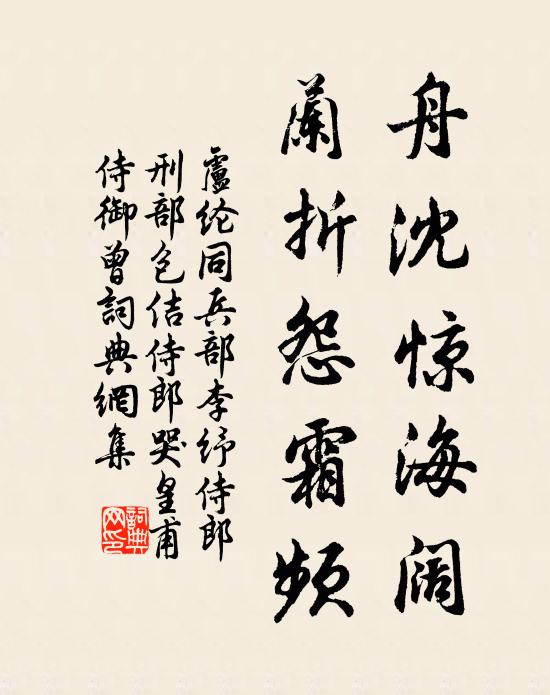 舟沈惊海阔
蘭折怨霜频
盧纶同兵部李纾侍郎
刑部包佶侍郎哭皇甫
侍御曾詞典網集
詞典网印